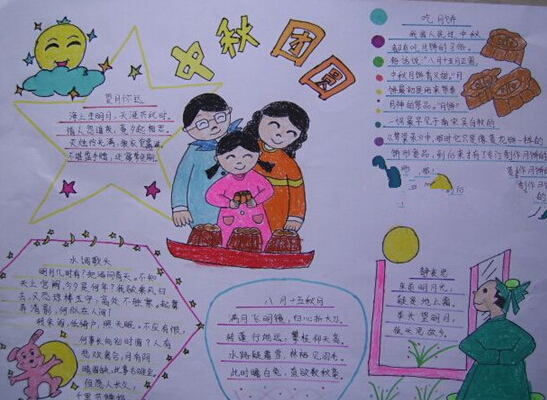 中秋团圆
望月怀远
海上生明月，天涯共此时。
情人怨遥夜，竟夕起相思。
灭烛怜光满，披衣觉露滋。
不堪盈手赠，还寝梦佳期。
吃月饼
我国人民过中秋
都有吃月饼的习俗。
俗话说"八月十五月正圆，
中秋月饼香又甜。"月
饼最初是用来祭奉
月神的祭品。"月饼"
一词最早见于南宋吴自牧的
《梦粱录》中，那时它只是像菱花饼一样的
饼形食品。
水调歌头
明月几时有？把酒问青天。不知
天上宫阙，今夕是何年？我欲乘风归
去，又恐琼楼玉宇，高处不胜寒。起舞
弄清影，何似在人间！
转朱阁，低绮户，照无眠。不应有恨，
何事长向别时圆？人有
悲欢离合，月有阴
晴圆缺，此事古难全。
但愿人长久，
千里共婵娟
八月十五夜月
满月飞明镜，归心折大刀。
转蓬行地远，攀桂仰天高。
水路疑霜雪，林栖见羽毛。
此时瞻白兔，直欲数秋毫。
静夜思
床前明月光，
疑是地上霜。
举头望明月，
低头思故乡。